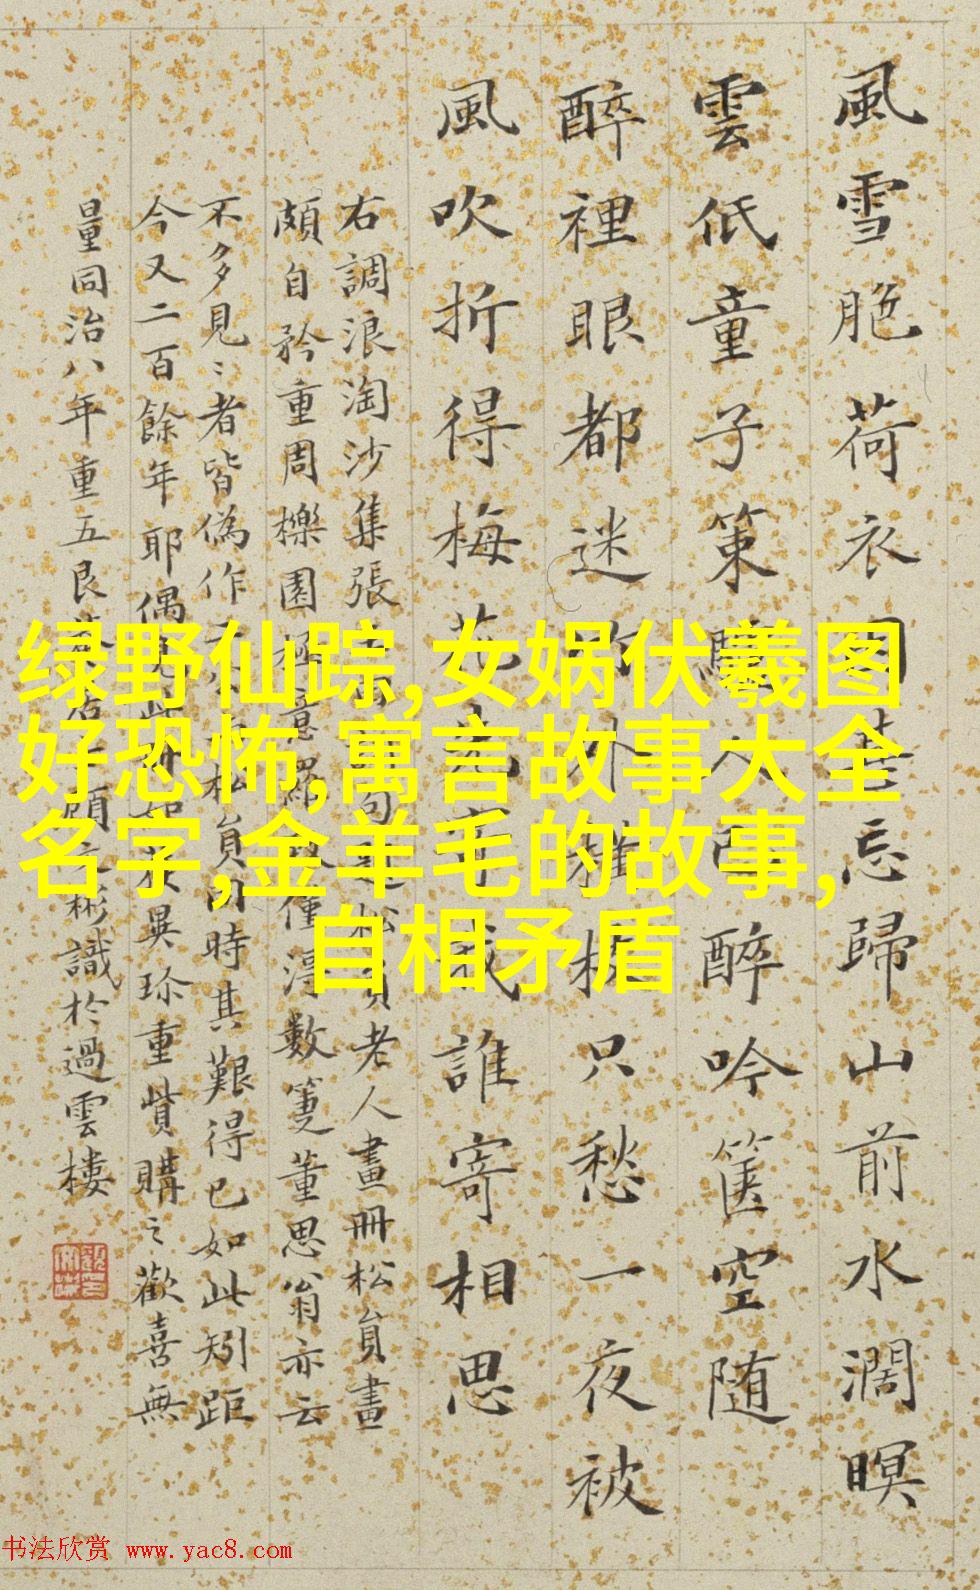 風雪脃荷衣忘歸山前水濶暝
雲低童子策人醉吟篋空随
醉裡眼都迷枝只愁一夜被
風吹折得梅花誰寄相思
右調浪淘沙集張句松員老人畫冊松員畫
頗自矜重周櫟園極意羅僅淂數箑董思翁亦云
不多見〻者皆偽作松員同時其艱得已如此矧距
今又二百餘年耶偶見此冊如获異珎重貲購之歡喜無
量同治八年重五艮菴顧文彬識於過雲樓
绿野仙踪,女娲伏羲图
好恐怖,寓言故事大全
名字,金羊毛的故事,
自相矛盾
书法欣赏 www.yac8.com